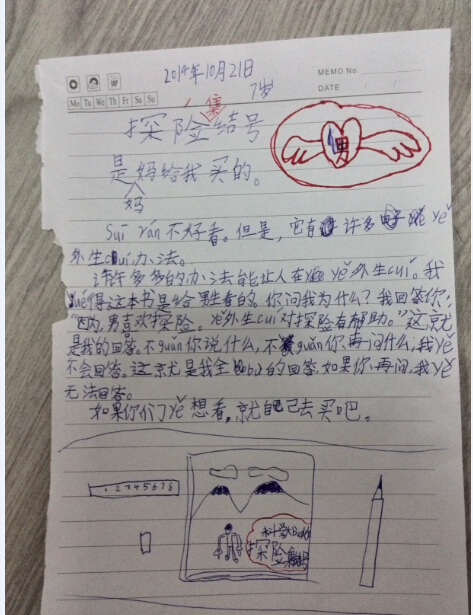 2014年10月21日
7岁
MEMO No.
DATE
Mo Tu We Th Fr Sa Su
集
探险结号
男
是妈给我买的。
妈
Suī rán不好看。但是，它有许多yě
外生cuí办法。
许许多多的办法能让人在yě外生cuí。我
jué得这本书是给男生看的。你问我为什么？我回答你：
“因为，男喜欢探险。yě外生cuí对探险有帮助。”这就
是我的回答。不guǎn你说什么，不guǎn你再问什么，我yě
不会回答。这就是我全bù的回答。如果你再问，我yě
无法回答。
如果你们yě想看，就自己去买吧。
12345678
科学大
探险集号